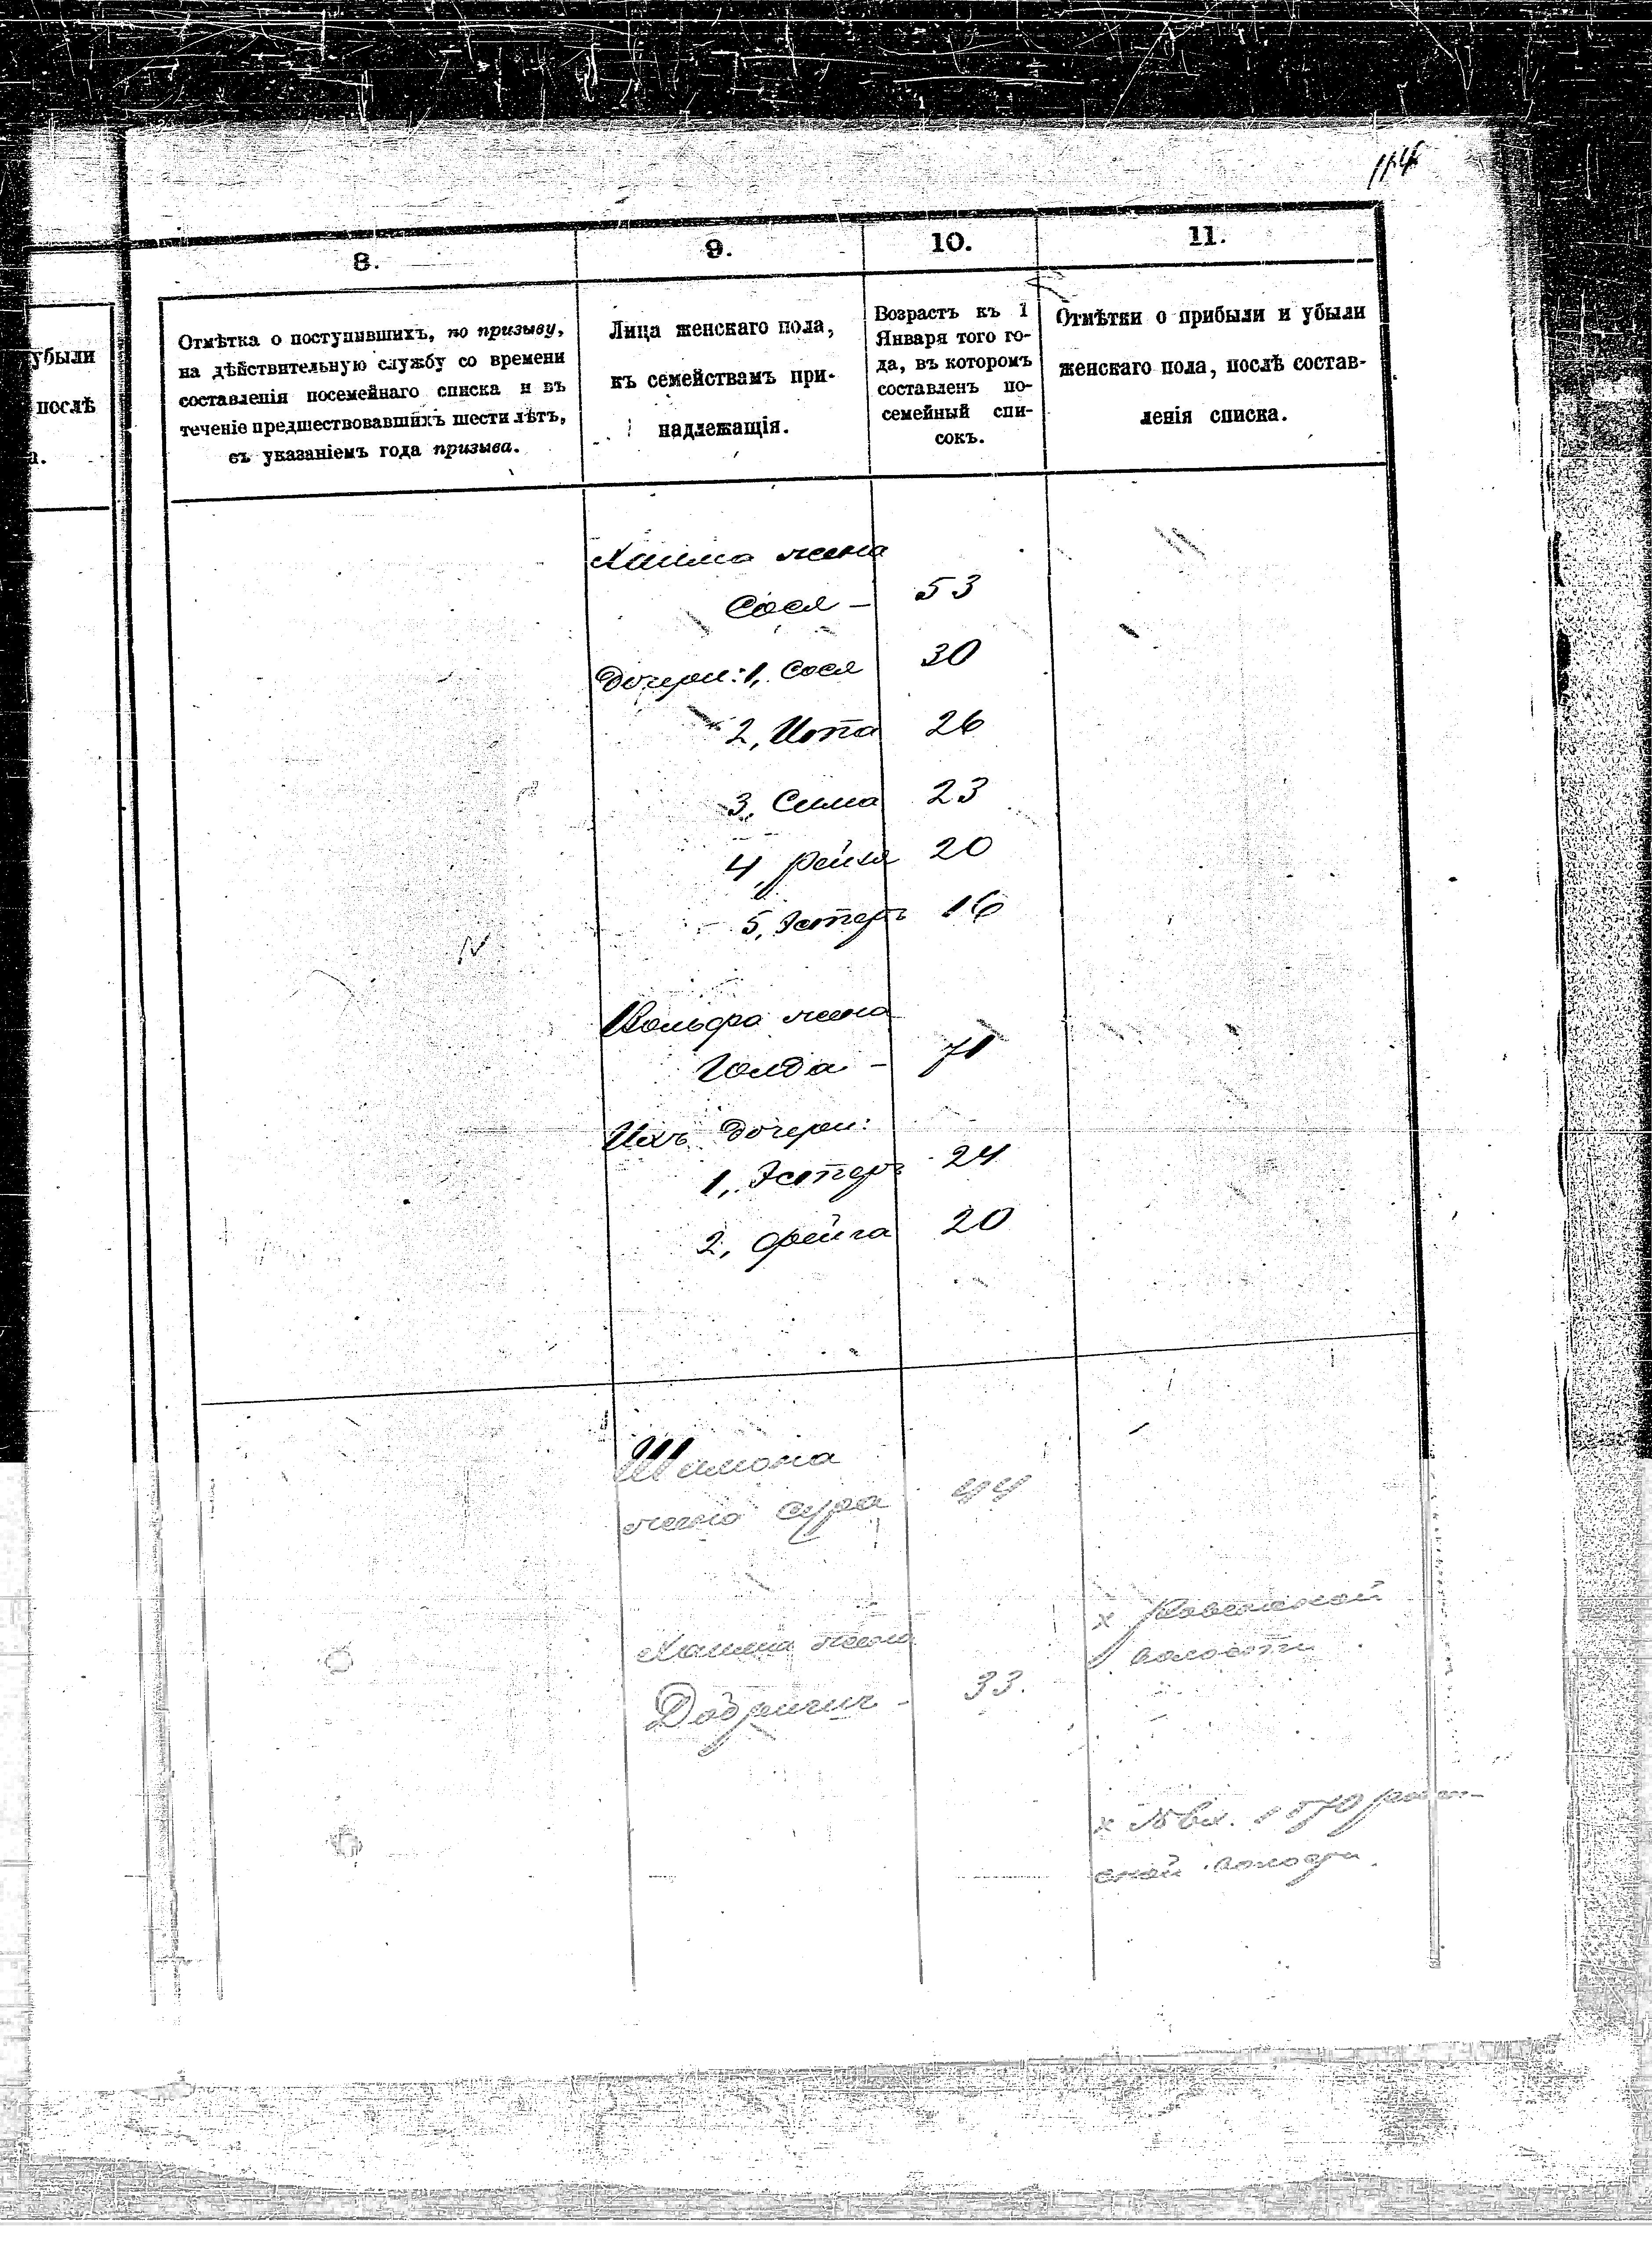 114
8.
9.
10.
11.
убыли
послѣ
а.
Отмѣтка о поступившихъ, по призыву,
на дѣйствительную службу со времени
составленія посемейнаго списка и въ
теченіе предшествовавшихъ шести лѣтъ,
съ указаніемъ года призыва.
Лица женскаго пола,
къ семействамъ при-
надлежащія.
Возрастъ къ 1
Января того го-
да, въ которомъ
составленъ по-
семейный спи-
сокъ.
Отмѣтки о прибыли и убыли
женскаго пола, послѣ состав-
ленія списка.
Хаима жена
Сося – 53
Дочери: 1, Сося 30
2, Ита 26
3, Сима 23
4, 20
5, Эстеръ 16
Вольфа жена
Голда – 71
Ихъ дочери:
1, Эстеръ 24
2, Фейга 20
Шимона
жена Сура 44
Хаима жена
33.
х
волости
х 1870
ской волости